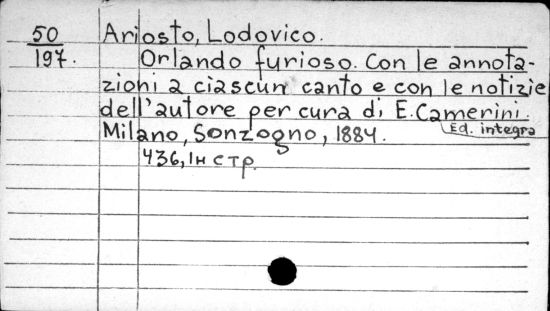 50
197.
Ariosto, Lodovico.
Orlando furioso. Con le annota-
zioni a ciascun canto e con le notizie
dell'autore per cura di E. Camerini.
Ed. integra
Milano, Sonzogno, 1884.
436, 1н стр.